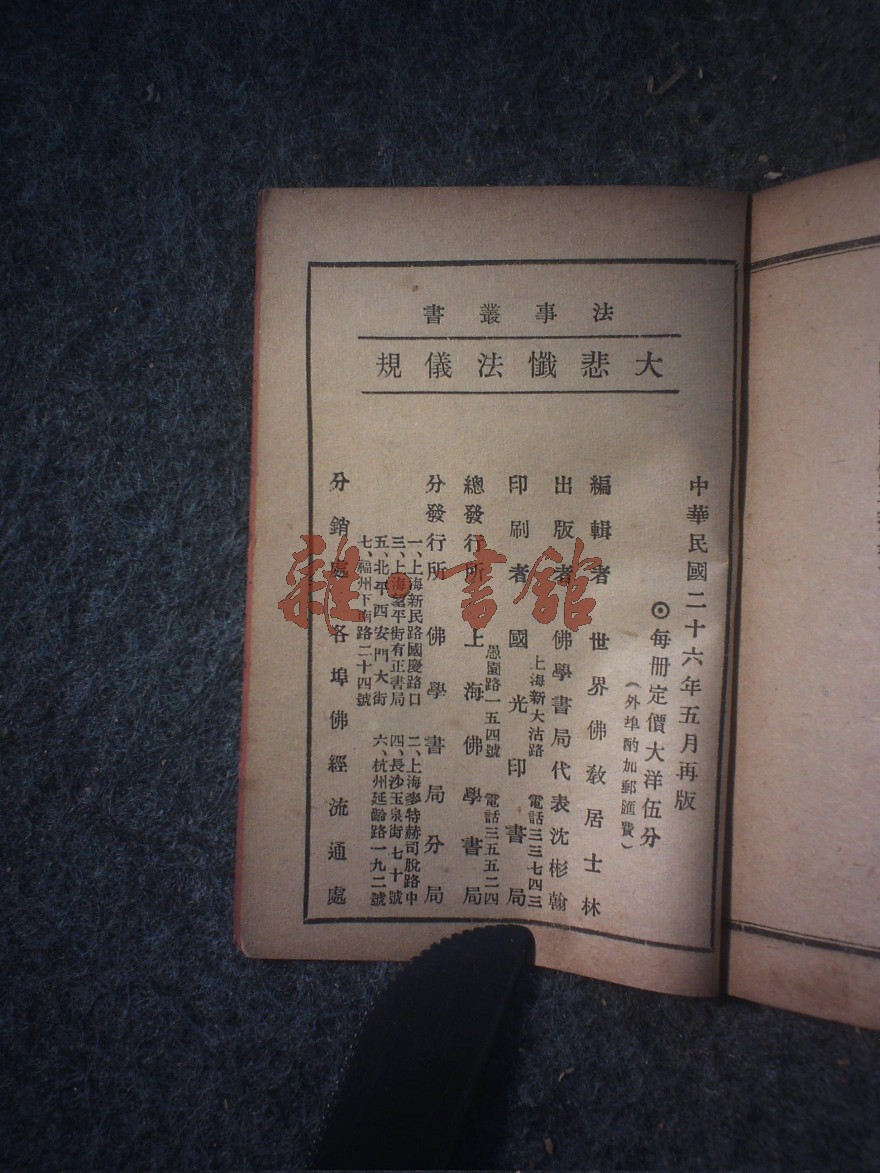 法事叢書
大悲懺法儀規
中華民國二十六年五月再版
⊙每冊定價大洋伍分
（外埠酌加郵匯費）
編輯者 世界佛教居士林
出版者 佛學書局代表沈彬翰
上海新大沽路 電話三三七四三
印刷者 國光印書局
愚園路一五四號 電話三五五二四
總發行所 上海佛學書局
分發行所 佛學書局分局
一、上海新民路國慶路口 二、上海麥特赫司脫路中
三、上海望平街有正書局 四、長沙玉泉街七十號
五、北平西安門大街 六、杭州延齡路一九二號
七、福州下南路二十四號
分銷處 各埠佛經流通處
雜·書館